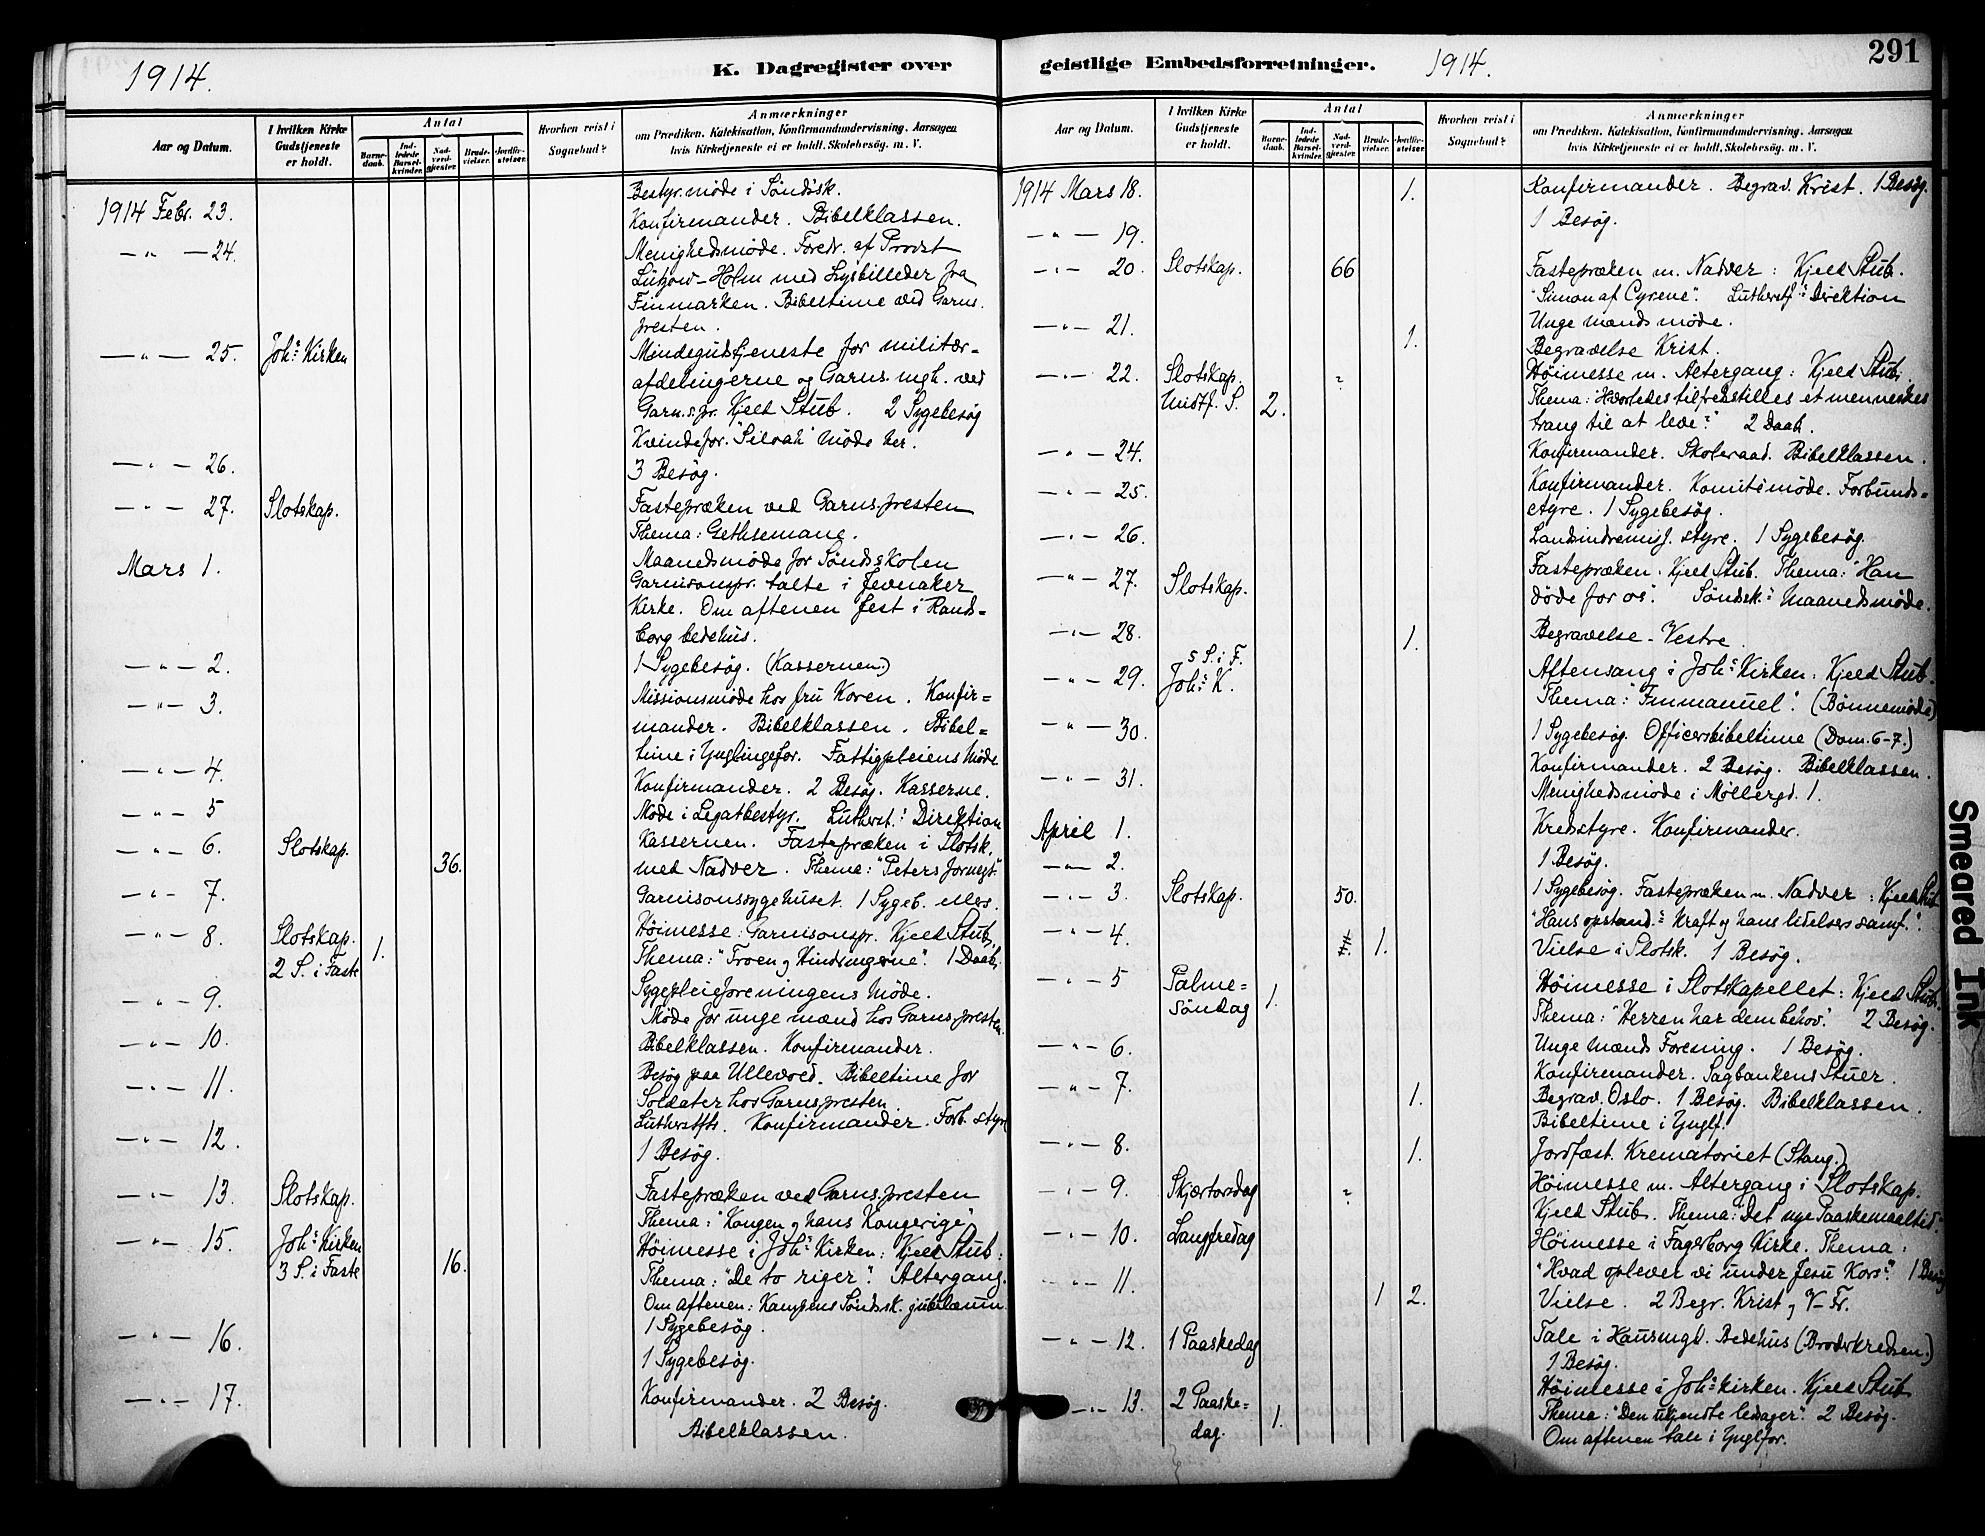 1914.
K. Dagregister over
Aar og Datum.
I hvilken Kirke Gudstjeneste er holdt.
Antal
Barnedaab.
Indledede Barselkvinder.
Nadverdgjester.
Brudevielser.
Jordfæstelser.
Hvorhen reist i Sognebud?
Anmærkninger
om Prædiken, Katekisation, Konfirmandundervisning, Aarsagen
hvis Kirketjeneste ei er holdt, Skolebesøg. m. V.
Bestyr.møde i Søndsk.
1914 Febr. 23. Konfirmander. Bibelklassen.
— " — 24. Menighedsmøde. Foredr. af Provst
Lützow-Holm med Lysbilleder fra
Finmarken. Bibeltime ved Garns.
presten.
— " — 25. Johs Kirken Mindegudstjeneste for militær-
afdelingerne og Garns. mgh. ved
Garn.s.pr. Kjeld Stub. 2 Sygebesøg
Kvindefor. "Siloah" møde her.
— " — 26. 3 Besøg.
— " — 27. Slotskap. Fastepræken ved Garns.presten
Thema: Gethsemane.
Mars 1. Maanedsmøde for Søndsskolen
Garnisonspr. talte i Jevnaker
Kirke. Om aftenen fest i Rands-
borg bedehus.
— " — 2. 1 Sygebesøg. (Kassernen.)
— " — 3. Missionsmøde hos fru Koren. Konfir-
mander. Bibelklassen. Bibel-
time i Ynglingefor. Fattigpleiens Møde.
— " — 4. Konfirmander. 2 Besøg. Kasserne.
— " — 5 Møde i Legatbestyr. Lutherst.s Direktion
— " — 6. Slotskap. 36. Kassernen. Fastepræken i Slotsk.
med Nadver. Thema: "Peters fornegt."
— " — 7. Garnisonssygehuset. 1 Sygeb. ellers.
— " — 8. Slotskap. 1. Høimesse: Garnisonspr. Kjeld Stub.
2 S. i Faste Thema: "Troen og Hindringerne". 1 Daab.
— " — 9. Sygepleieforeningens Møde.
Møde for unge mænd hos Garns.presten.
— " — 10. Bibelklassen. Konfirmander.
— " — 11. Besøg paa Ullevold. Bibeltime for
Soldater hos Garnspresten.
Lutherstfts. Konfirmander. Forb. styre
— " — 12. 1 Besøg.
— " — 13. Slotskap. Fastepræken ved Garns.presten
Thema: "Kongen og hans Kongerige"
— " — 15. Johs Kirken Høimesse i Johs Kirken: Kjeld Stub:
3 S. i Faste 16. Thema: "De to riger". Altergang.
Om aftenen: Kampens Søndsk. jubilæum.
1 Sygebesøg.
— " — 16. 1 Sygebesøg.
— " — 17. Konfirmander. 2 Besøg.
Bibelklassen.
geistlige Embedsforretninger.
1914.
291
Aar og Datum.
I hvilken Kirke Gudstjeneste er holdt.
Antal
Barnedaab.
Indledede Barselkvinder.
Nadverdgjester.
Brudevielser.
Jordfæstelser.
Hvorhen reist i Sognebud?
Anmærkninger
om Prædiken, Katekisation, Konfirmandundervisning, Aarsagen
hvis Kirketjeneste ei er holdt, Skolebesøg. m. V.
1914 Mars 18. 1. Konfirmander. Begrav. Krist. 1 Besøg.
— " — 19. 1 Besøg.
— " — 20. Slotskap. 66 Fastepræken m. Nadver: Kjeld Stub.
"Simon af Cyrene". Lutherstf.s Direktion
— " — 21. Unge mænds møde.
1. Begravelse Krist.
— " — 22. Slotskap. ? Høimesse m. Altergang: Kjeld Stub.
Midtf. S. 2. Thema: Hvorledes tilfredsstilles et menneskes
trang til at leve?" 2 Daab.
— " — 24. Konfirmander. Skoleraad. Bibelklassen.
— " — 25. Konfirmander. Komitémøde. Forbunds-
styre. 1 Sygebesøg.
— " — 26. Landsindremisj. styre. 1 Sygebesøg.
— " — 27. Slotskap. Fastepræken. Kjeld Stub. Thema: "Han
døde for os". Søndsk.s Maanedsmøde.
— " — 28. 1. Begravelse - Vestre.
5 S. i F.
— " — 29. Johs K. Aftensang i Johs Kirken. Kjeld Stub.
Thema: "Immanuel". (Bønnemøde)
— " — 30. 1 Sygebesøg. Officersbibeltime (Dom. 6-7.)
— " — 31. Konfirmander. 2 Besøg. Bibelklassen.
Menighedsmøde i Møllergd. 1.
April 1. Kredsstyre. Konfirmander.
— " — 2. 1 Besøg.
— " — 3. Slotskap. 50. 1 Sygebesøg. Fastepræken m. Nadver: Kjeld Stub
"Hans opstand.s Kraft og hans lidelsers samf.".
— " — 4. 1. Vielse i Slotsk. 1 Besøg.
— " — 5 Palme- Høimesse i Slotskapellet: Kjeld Stub.
søndag 1. Thema: "Herren har dem behov." 2 Besøg.
— " — 6. Unge Mænds Forening. 1 Besøg.
— " — 7. Konfirmander. Sagbankens Stuer.
1. Begrav. Oslo. 1 Besøg. Bibelklassen.
Bibeltime i Ynglf.
— " — 8. 1. Jordfæst. Krematoriet (Stang.)
— " — 9. Skjærtorsdag ? Høimesse m. Altergang i Slotskap.
Kjeld Stub. Thema: "Det nye Paaskemaaltid."
— " — 10. Langfredag Høimesse i Fagerborg Kirke. Thema:
"Hvad oplever vi under Jesu Kors?" 1 Besøg
— " — 11. 1 2. Vielse. 2 Begr. Krist og V-Fr.
— " — 12. 1 Paaskedag Tale i Hausmgt. Bedehus (Broderkredsen.)
1 Besøg.
— " — 13. 2 Paaske- Høimesse i Johs kirken. Kjeld Stub
dag. 1. Thema: "Den ukjendte ledsager". 2 Besøg.
Om aftenen tale i Ynglfor.
Smeared Ink